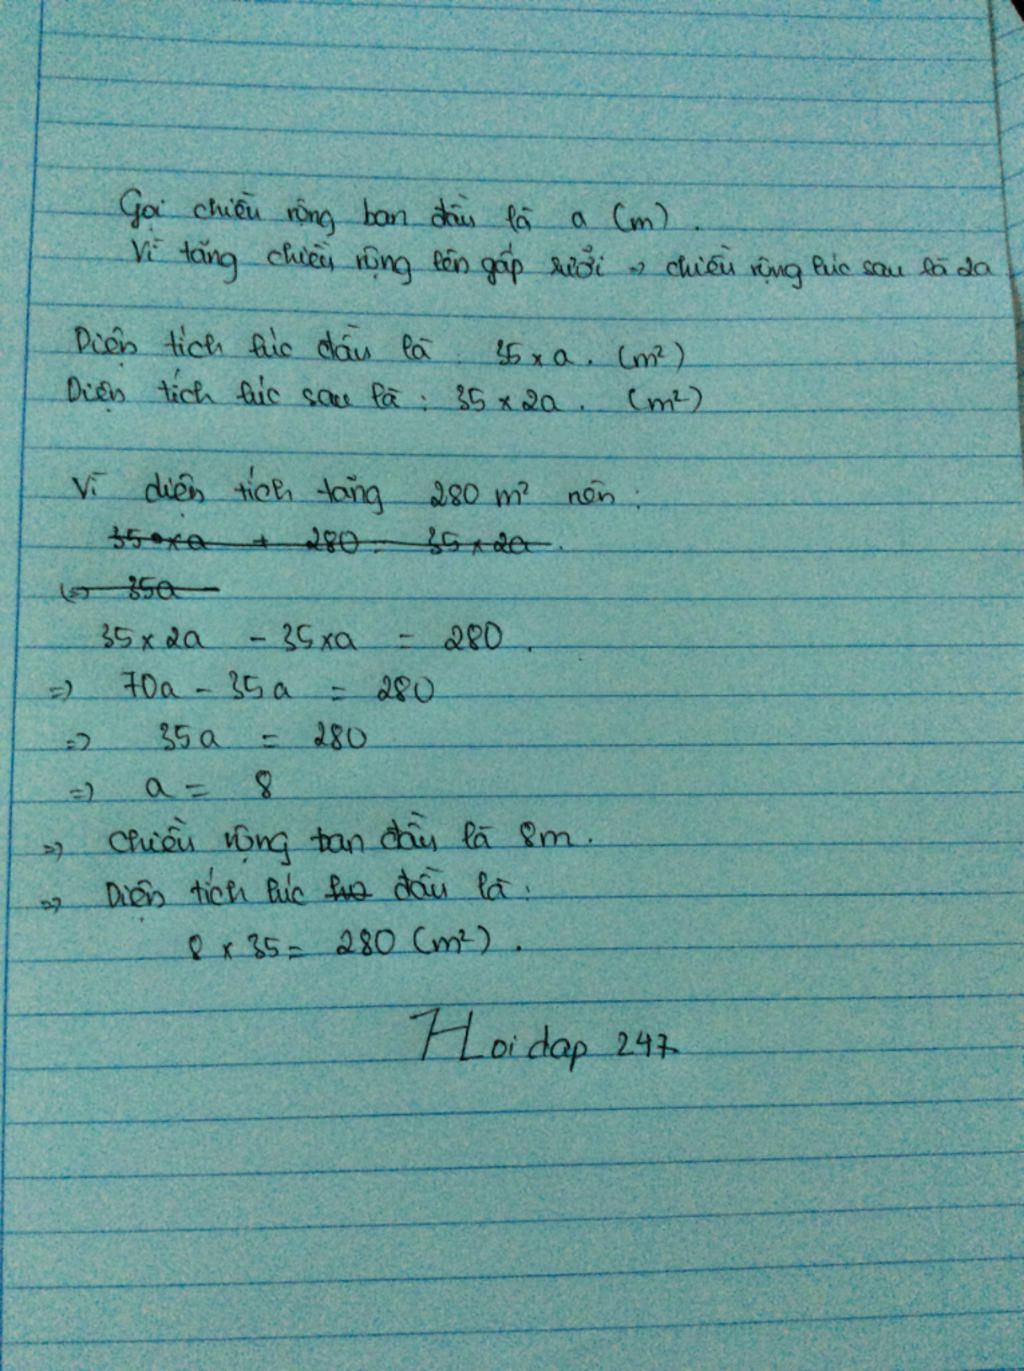 Gọi chiều rộng ban đầu là a (m).
Vì tăng chiều rộng lên gấp rưỡi => chiều rộng lúc sau là 2a
Diện tích lúc đầu là 35 x a. (m²)
Diện tích lúc sau là: 35 x 2a. (m²)
Vì diện tích tăng 280 m² nên:
35 x a + 280 = 35 x 2a.
<=> 35a
35 x 2a - 35 x a = 280.
=> 70a - 35a = 280
=> 35a = 280
=> a = 8
=> chiều rộng ban đầu là 8m.
=> Diện tích lúc đầu là:
8 x 35 = 280 (m²).
Hoidap 247